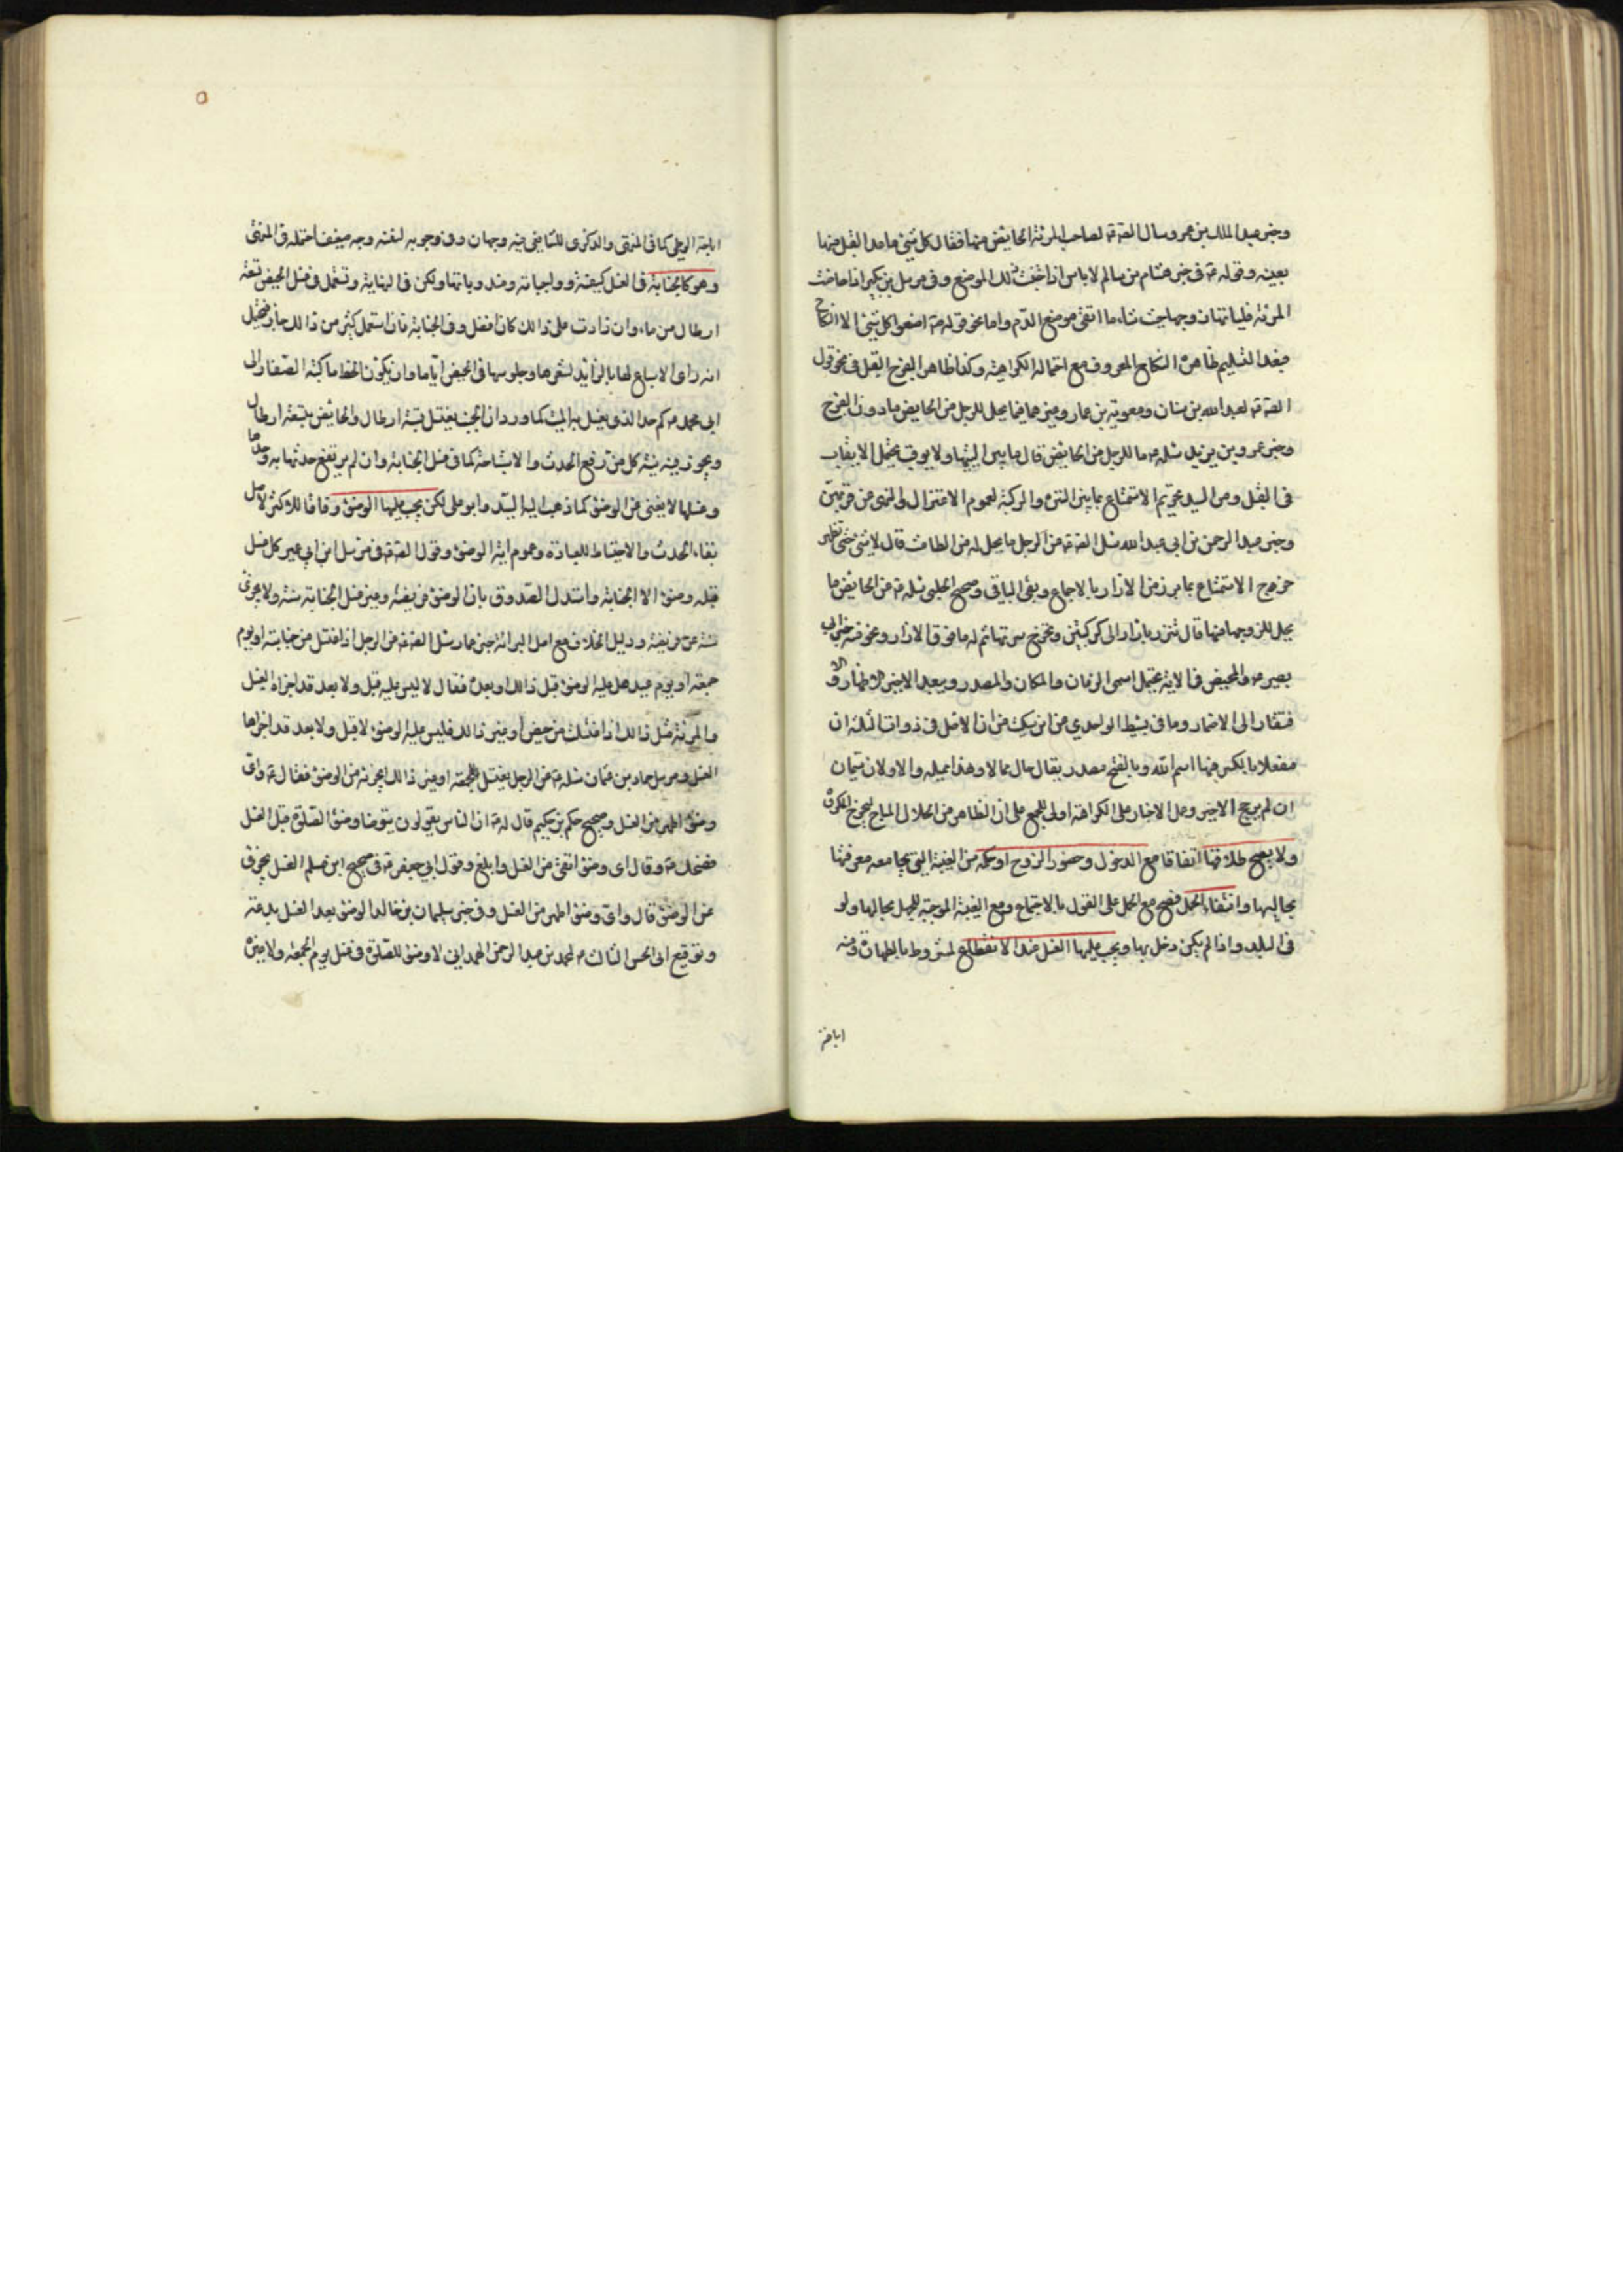 وخبر عبد الملك بن عمرو سال الصادق ع لصاحب المرئة الحايض منها فقال كل شئ ما عدا القبل منها
بعينه وقوله ع في خبر هشام بن سالم لا باس اذا اجتنب ذلك الموضع وفي مرسل ابن بكير اذا حاضت
المرئة فلياتها زوجها حيث شاء ما اتقى موضع الدم واما نحو قوله ص اصنعوا كل شئ الا النكاح
فبعد التسليم ظاهره النكاح المعروف مع احتماله الكراهية وكذا ظاهر الفرج القبل في نحو قول
الصادق ع لعبد الله بن سنان ومعوية بن عمار وغيرهما فيما يحل للرجل من الحايض ما دون الفرج
وخبر عمر وبن يزيد سئله ع ما للرجل من الحايض قال ما بين اليتيها ولا يوقب يحتمل الايقاب
في القبل وعن السيد تحريم الاستمتاع بما بين السرة والركبة لعموم الاعتزال والنهى عن قربهن
وخبر عبد الرحمن بن ابي عبد الله سئل الصادق ع عن الرجل ما يحل له من الطامث قال لا شئ حتى تطهر
خرج الاستمتاع بما برز من الازار بالاجماع وبقى الباقي وصحيح الحلبي سئله ع عن الحايض ما
يحل للزوجها منها قال تتزر بازار الى الركبتين وتخرج سرتها ثم له ما فوق الازار ونحوه خبر ابي
بصير عنه ع والمحيض في الاية يحتمل اسمى الزمان والمكان والمصدر ويبعد الاخير الاظهار و
فتقار الى الاضمار وما في بسيط الواحدي عن ابن سكيت من ان الاصل في ذوات الثلثة ان
مفعلا بالكسر منها اسم الله وبالفتح مصدر يقال مال ممالا وهذا مميله والاولان سيان
ان لم يرجح الاخير وحمل الاخبار على الكراهة اولى للجمع على ان الظاهر من الحلال المباح ليخرج المكروه
ولا يصح طلاقها اتفاقا مع الدخول وحضور الزوج او حكمه من الغيبة التي يجامعه معرفتها
بحالها وانتفاء الحمل فيصح مع الحمل على القول بالاجتماع ومع الغيبة الموجبة للجهل بحالها ولو
في البلد واذا لم يكن دخل بها ويجب عليها الغسل عند الانقطاع لمشروط بالطهارة ومنه
اباحة
اباحة الوطى كما في المنتهى والذكرى للشافعي فيه وجهان وفي وجوبه لنفسه وجه ضعيف احتمله في المنتهى
وهو كالجنابة في الغسل كيفية وواجباته ومندوباتها ولكن في النهاية وتستعمل في غسل الحيض تسعة
ارطال من ماء وان زادت على ذالك كان افضل وفي الجنابة فان استعمل اكثر من ذالك جاز فيحتمل
انه راى الاسباغ لها بالزايد لشعرها وجلوسها في الحيض اياما وان يكون لحظ ما كتبه الصفار الى
ابي محمد ع كم حد الذي يغسل به الميت كما ورد ان الجنب يغتسل بستة ارطال والحائض بتسعة ارطال
ويجوز فيه نية كل من رفع الحدث والاستباحة كما في غسل الجنابة وان لم يرتفع حدثها به وحدها
وغسلها لا يغني عن الوضوء كما ذهب اليه السيد وابو على لكن يجب عليها الوضوء وفاقا للاكثر لاصل
بقاء الحدث والاحتياط للعبادة وعموم اية الوضوء وقول الصادق ع في مرسل ابن ابي عمير كل غسل
قبله وضوء الا الجنابة واستدل الصدوق بان الوضوء فريضة وغير غسل الجنابة سنة ولا يجزى
سنة عن فريضة ودليل الخلاف مع اصل البرائة خبر عمار سئل الصادق ع عن الرجل اذا اغتسل من جنابته او يوم
جمعة او يوم عيد هل عليه الوضوء قبل ذالك او بعده فقال لا ليس عليه قبل ولا بعد قد اجزاه الغسل
والمرئة مثل ذالك اذا اغتسلت من حيض او غير ذالك فليس عليها الوضوء لا قبل ولا بعد قد اجزاها
الغسل ومرسل حماد بن عثمان سئله ع عن الرجل يغتسل للجمعة او غير ذالك ايجزئه من الوضوء فقال ع واى
وضوء اطهر من الغسل وصحيح حكم بن حكيم قال له ع ان الناس يقولون يتوضا وضوء الصلوة قبل الغسل
فضحك ع وقال اى وضوء انقى من الغسل وابلغ وقول ابي جعفر ع في صحيح ابن مسلم الغسل يجزى
عن الوضوء قال واى وضوء اطهر من الغسل وفي خبر سليمان بن خالد الوضوء بعد الغسل بدعة
وتوقيع ابى الحسن الثالث ع لمحمد بن عبد الرحمن الهمداني لا وضوء للصلوة في غسل يوم الجمعة ولا غيره